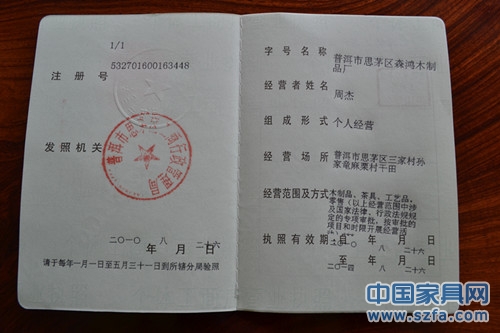 1/1
注册号 532701600163448
发照机关
二〇一〇 八 二十六
年 月 日
请于每年一月一日至五月三十一日到所辖分局验照
字号名称 普洱市思茅区森鸿木制品厂
经营者姓名 周杰
组成形式 个人经营
经营场所 普洱市思茅区三家村孙
家竜麻栗村干田
经营范围及方式 木制品、茶具、工艺品,
零售(以上经营范围中涉
及国家法律、行政法规规
定的专项审批,按审批的
项目和时限开展经营活
执照有效期自 年 月 日
八 二十六
至 年 月 日
二〇一四 八 二十六
中国家具网
www.szfa.com